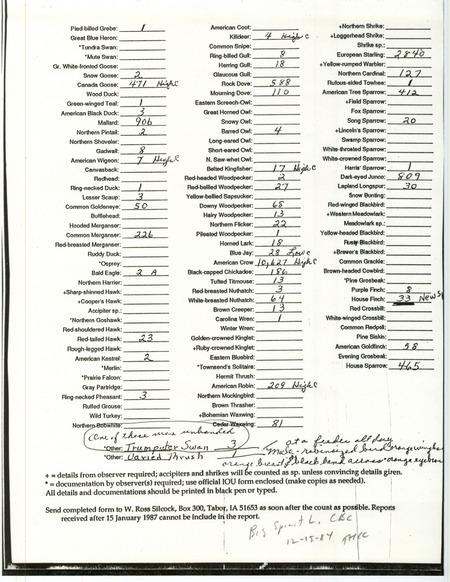 Pied-billed Grebe: 1
Great Blue Heron:
*Tundra Swan:
*Mute Swan:
Gr. White-fronted Goose:
Snow Goose: 2
Canada Goose: 471 High C
Wood Duck:
Green-winged Teal: 1
American Black Duck: 3
Mallard: 906
Northern Pintail: 2
Northern Shoveler:
Gadwall: 8
American Wigeon: 7 High C
Canvasback:
Redhead:
Ring-necked Duck: 1
Lesser Scaup: 3
Common Goldeneye: 50
Bufflehead:
Hooded Merganser:
Common Merganser: 226
Red-breasted Merganser:
Ruddy Duck:
*Osprey:
Bald Eagle: 2 A
Northern Harrier:
+Sharp-shinned Hawk:
+Cooper's Hawk:
Accipiter sp.:
*Northern Goshawk:
Red-shouldered Hawk:
Red-tailed Hawk: 23
Rough-legged Hawk:
American Kestrel: 2
*Merlin:
*Prairie Falcon:
Gray Partridge:
Ring-necked Pheasant: 3
Ruffed Grouse:
Wild Turkey:
Northern Bobwhite:
American Coot:
Killdeer: 4 High C
Common Snipe:
Ring-billed Gull: 8
Herring Gull: 18
Glaucous Gull:
Rock Dove: 588
Mourning Dove: 110
Eastern Screech-Owl:
Great Horned Owl:
Snowy Owl:
Barred Owl: 4
Long-eared Owl:
Short-eared Owl:
N. Saw-whet Owl:
Belted Kingfisher: 17 High C
Red-headed Woodpecker: 2
Red-bellied Woodpecker: 27
Yellow-bellied Sapsucker:
Downy Woodpecker: 68
Hairy Woodpecker: 13
Northern Flicker: 22
Pileated Woodpecker: 1
Horned Lark: 18
Blue Jay: 28 Low C
American Crow 10,627 High C
Black-capped Chickadee: 186
Tufted Titmouse: 13
Red-breasted Nuthatch: 3
White-breasted Nuthatch: 64
Brown Creeper: 13
Carolina Wren: 1
Winter Wren:
Golden-crowned Kinglet:
+Ruby-crowned Kinglet:
Eastern Bluebird:
*Townsend's Solitaire:
Hermit Thrush:
American Robin: 209 High C
Northern Mockingbird:
Brown Thrasher:
+Bohemian Waxwing:
Cedar Waxwing: 81
+Northern Shrike:
+Loggerhead Shrike:
Shrike sp.:
European Starling: 2840
+Yellow-rumped Warbler:
Northern Cardinal: 127
Rufous-sided Towhee: 1
American Tree Sparrow: 412
+Field Sparrow:
Fox Sparrow:
Song Sparrow: 20
+Lincoln's Sparrow:
Swamp Sparrow:
White-throated Sparrow:
White-crowned Sparrow:
Harris' Sparrow: 1
Dark-eyed Junco: 809
Lapland Longspur: 30
Snow Bunting:
Red-winged Blackbird:
+Western Meadowlark:
Meadowlark sp.:
Yellow-headed Blackbird:
Rusty Blackbird:
+Brewer's Blackbird:
Common Grackle:
Brown-headed Cowbird:
*Pine Grosbeak:
Purple Finch: 8
House Finch: 33 New Sp
Red Crossbill:
White-winged Crossbill:
Common Redpoll:
Pine Siskin:
American Goldfinch: 58
Evening Grosbeak:
House Sparrow: 465
(One of these was unbanded)
*Other: Trumpeter Swan 3
*Other: Varied Thrush 1
at a feeder all day
orange breast & black band across orange eyebrow
+ = details from observer required; accipiters and shrikes will be counted as sp. unless convincing details given.
* = documentation by observer(s) required; use official IOU form enclosed (make copies as needed).
All details and documentations should be printed in black pen or typed.
Send completed form to W. Ross Silcock, Box 300, Tabor, IA 51653 as soon after the count as possible. Reports
received after 15 January 1987 cannot be include in the report.
Big Spirit L. CBC